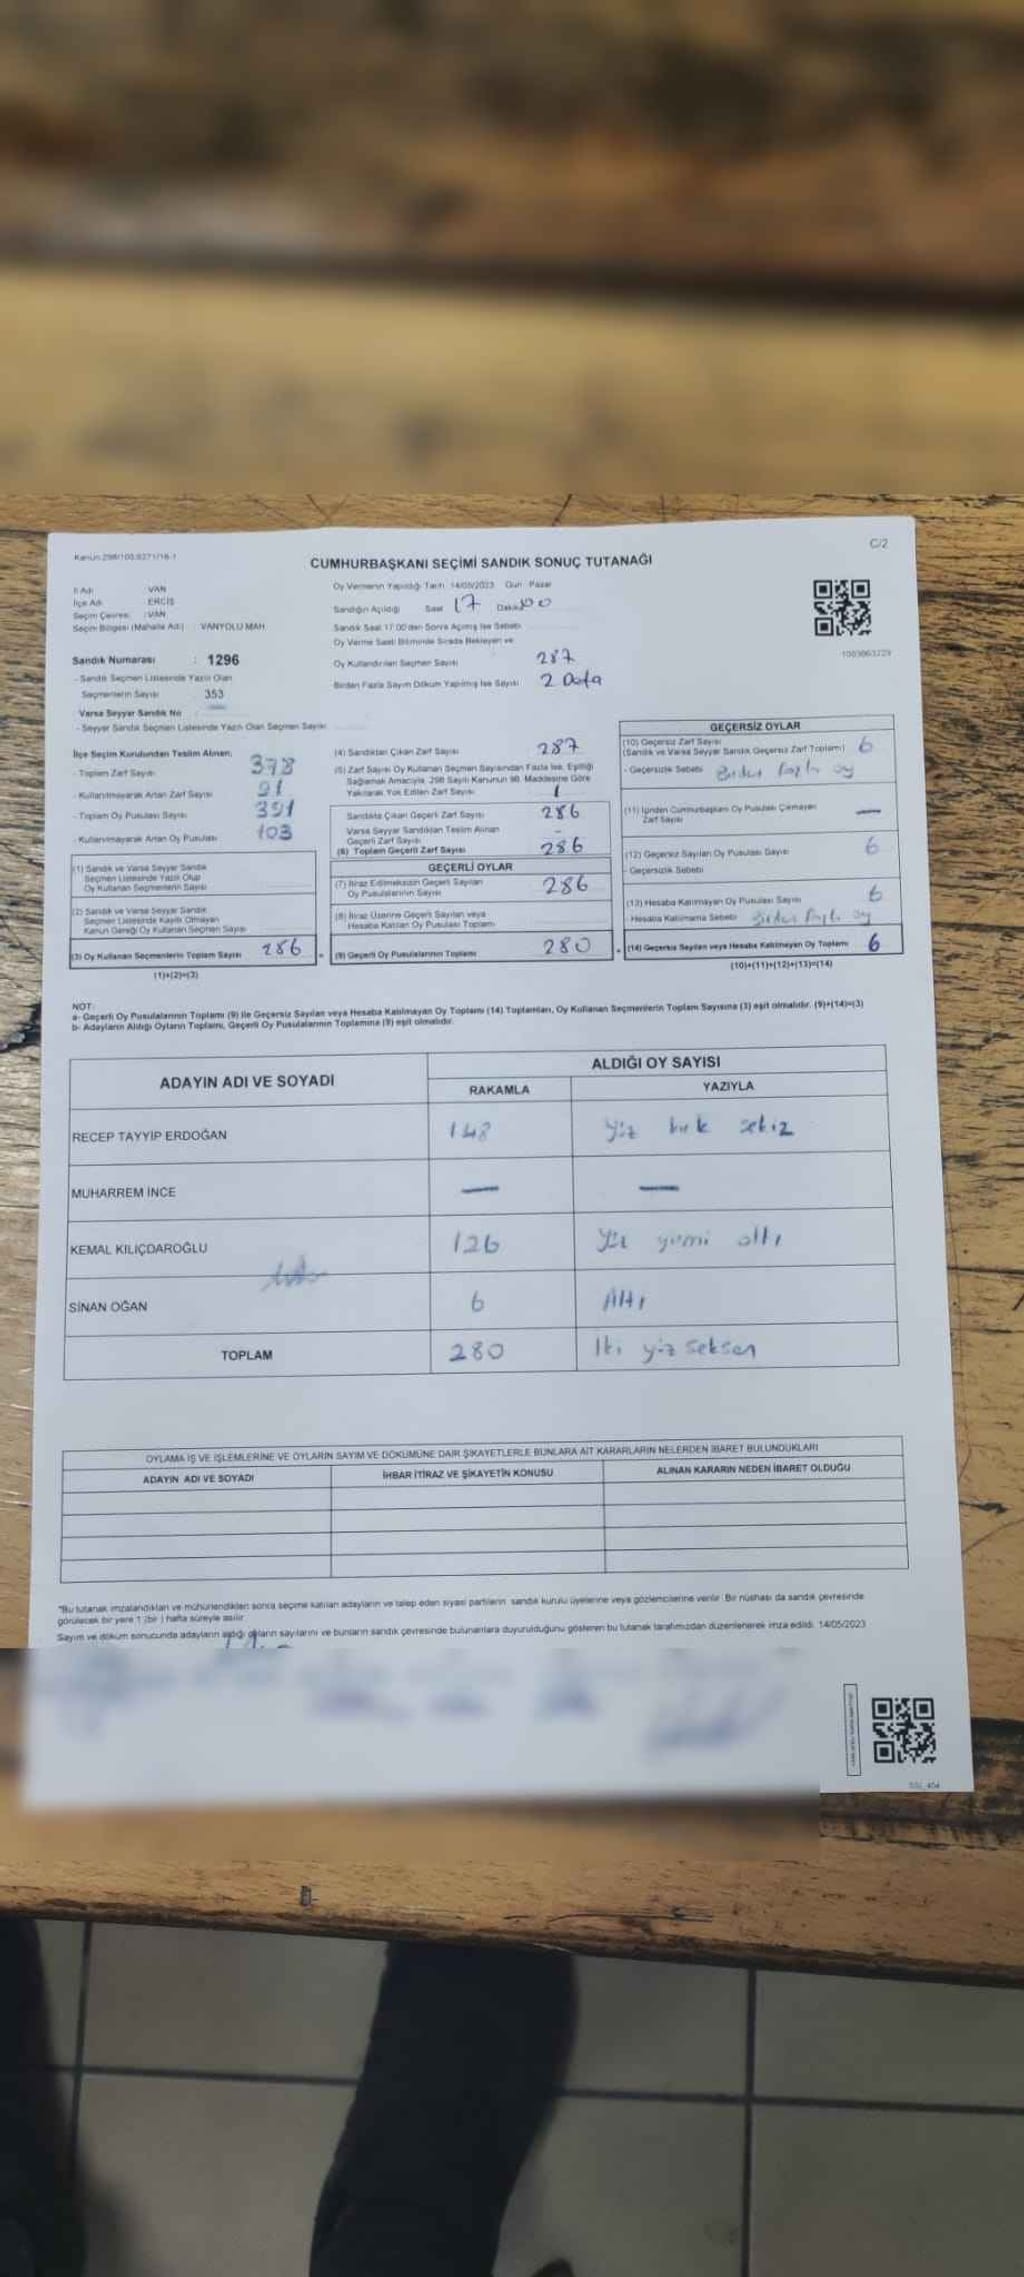 Kanun:298/105,6271/16-1
C/2
CUMHURBAŞKANI SEÇİMİ SANDIK SONUÇ TUTANAĞI
İl Adı : VAN
İlçe Adı : ERCİŞ
Seçim Çevresi : VAN
Seçim Bölgesi (Mahalle Adı) : VANYOLU MAH.
Sandık Numarası : 1296
- Sandık Seçmen Listesinde Yazılı Olan
Seçmenlerin Sayısı 353
Varsa Seyyar Sandık No
- Seyyar Sandık Seçmen Listesinde Yazılı Olan Seçmen Sayısı
Oy Vermenin Yapıldığı Tarih 14/05/2023 Gün Pazar
Sandığın Açıldığı Saat 17 Dakika 00
Sandık Saat 17:00'den Sonra Açılmış İse Sebebi
Oy Verme Saati Bitiminde Sırada Bekleyen ve
Oy Kullandırılan Seçmen Sayısı 287
Birden Fazla Sayım Döküm Yapılmış İse Sayısı 2 Defa
İlçe Seçim Kurulundan Teslim Alınan;
- Toplam Zarf Sayısı 378
- Kullanılmayarak Artan Zarf Sayısı 91
- Toplam Oy Pusulası Sayısı 391
- Kullanılmayarak Artan Oy Pusulası 103
(1) Sandık ve Varsa Seyyar Sandık
Seçmen Listesinde Yazılı Olup
Oy Kullanan Seçmenlerin Sayısı
(2) Sandık ve Varsa Seyyar Sandık
Seçmen Listesinde Kayıtlı Olmayan
Kanun Gereği Oy Kullanan Seçmen Sayısı
(3) Oy Kullanan Seçmenlerin Toplam Sayısı 286
(1)+(2)=(3)
(4) Sandıktan Çıkan Zarf Sayısı 287
(5) Zarf Sayısı Oy Kullanan Seçmen Sayısından Fazla İse, Eşitliği
Sağlamak Amacıyla, 298 Sayılı Kanunun 98. Maddesine Göre
Yakılarak Yok Edilen Zarf Sayısı 1
Sandıkta Çıkan Geçerli Zarf Sayısı 286
Varsa Seyyar Sandıktan Teslim Alınan
Geçerli Zarf Sayısı -
(6) Toplam Geçerli Zarf Sayısı 286
GEÇERLİ OYLAR
(7) İtiraz Edilmeksizin Geçerli Sayılan
Oy Pusulalarının Sayısı 286
(8) İtiraz Üzerine Geçerli Sayılan veya
Hesaba Katılan Oy Pusulası Toplamı
(9) Geçerli Oy Pusulalarının Toplamı 280
GEÇERSİZ OYLAR
(10) Geçersiz Zarf Sayısı
(Sandık ve Varsa Seyyar Sandık Geçersiz Zarf Toplamı) 6
- Geçersizlik Sebebi Birden fazla oy
(11) İçinden Cumhurbaşkanı Oy Pusulası Çıkmayan
Zarf Sayısı —
(12) Geçersiz Sayılan Oy Pusulası Sayısı 6
- Geçersizlik Sebebi
(13) Hesaba Katılmayan Oy Pusulası Sayısı 6
Hesaba Katılmama Sebebi Birden fazla oy
(14) Geçersiz Sayılan veya Hesaba Katılmayan Oy Toplamı 6
(10)+(11)+(12)+(13)=(14)
NOT:
a- Geçerli Oy Pusulalarının Toplamı (9) ile Geçersiz Sayılan veya Hesaba Katılmayan Oy Toplamı (14) Toplamları, Oy Kullanan Seçmenlerin Toplam Sayısına (3) eşit olmalıdır. (9)+(14)=(3)
b- Adayların Aldığı Oyların Toplamı, Geçerli Oy Pusulalarının Toplamına (9) eşit olmalıdır.
ADAYIN ADI VE SOYADI
ALDIĞI OY SAYISI
RAKAMLA YAZIYLA
RECEP TAYYİP ERDOĞAN 148 yüz kırk sekiz
MUHARREM İNCE — —
KEMAL KILIÇDAROĞLU 126 yüz yirmi altı
SİNAN OĞAN 6 Altı
TOPLAM 280 İki yüz seksen
OYLAMA İŞ VE İŞLEMLERİNE VE OYLARIN SAYIM VE DÖKÜMÜNE DAİR ŞİKAYETLERLE BUNLARA AİT KARARLARIN NELERDEN İBARET BULUNDUKLARI
ADAYIN ADI VE SOYADI İHBAR İTİRAZ VE ŞİKAYETİN KONUSU ALINAN KARARIN NEDEN İBARET OLDUĞU
*Bu tutanak imzalandıktan ve mühürlendikten sonra seçime katılan adayların ve talep eden siyasi partilerin sandık kurulu üyelerine veya gözlemcilerine verilir. Bir nüshası da sandık çevresinde
görülecek bir yere 1 (bir ) hafta süreyle asılır.
Sayım ve döküm sonucunda adayların aldığı oyların sayılarını ve bunların sandık çevresinde bulunanlara duyurulduğunu gösteren bu tutanak tarafımızdan düzenlenerek imza edildi. 14/05/2023